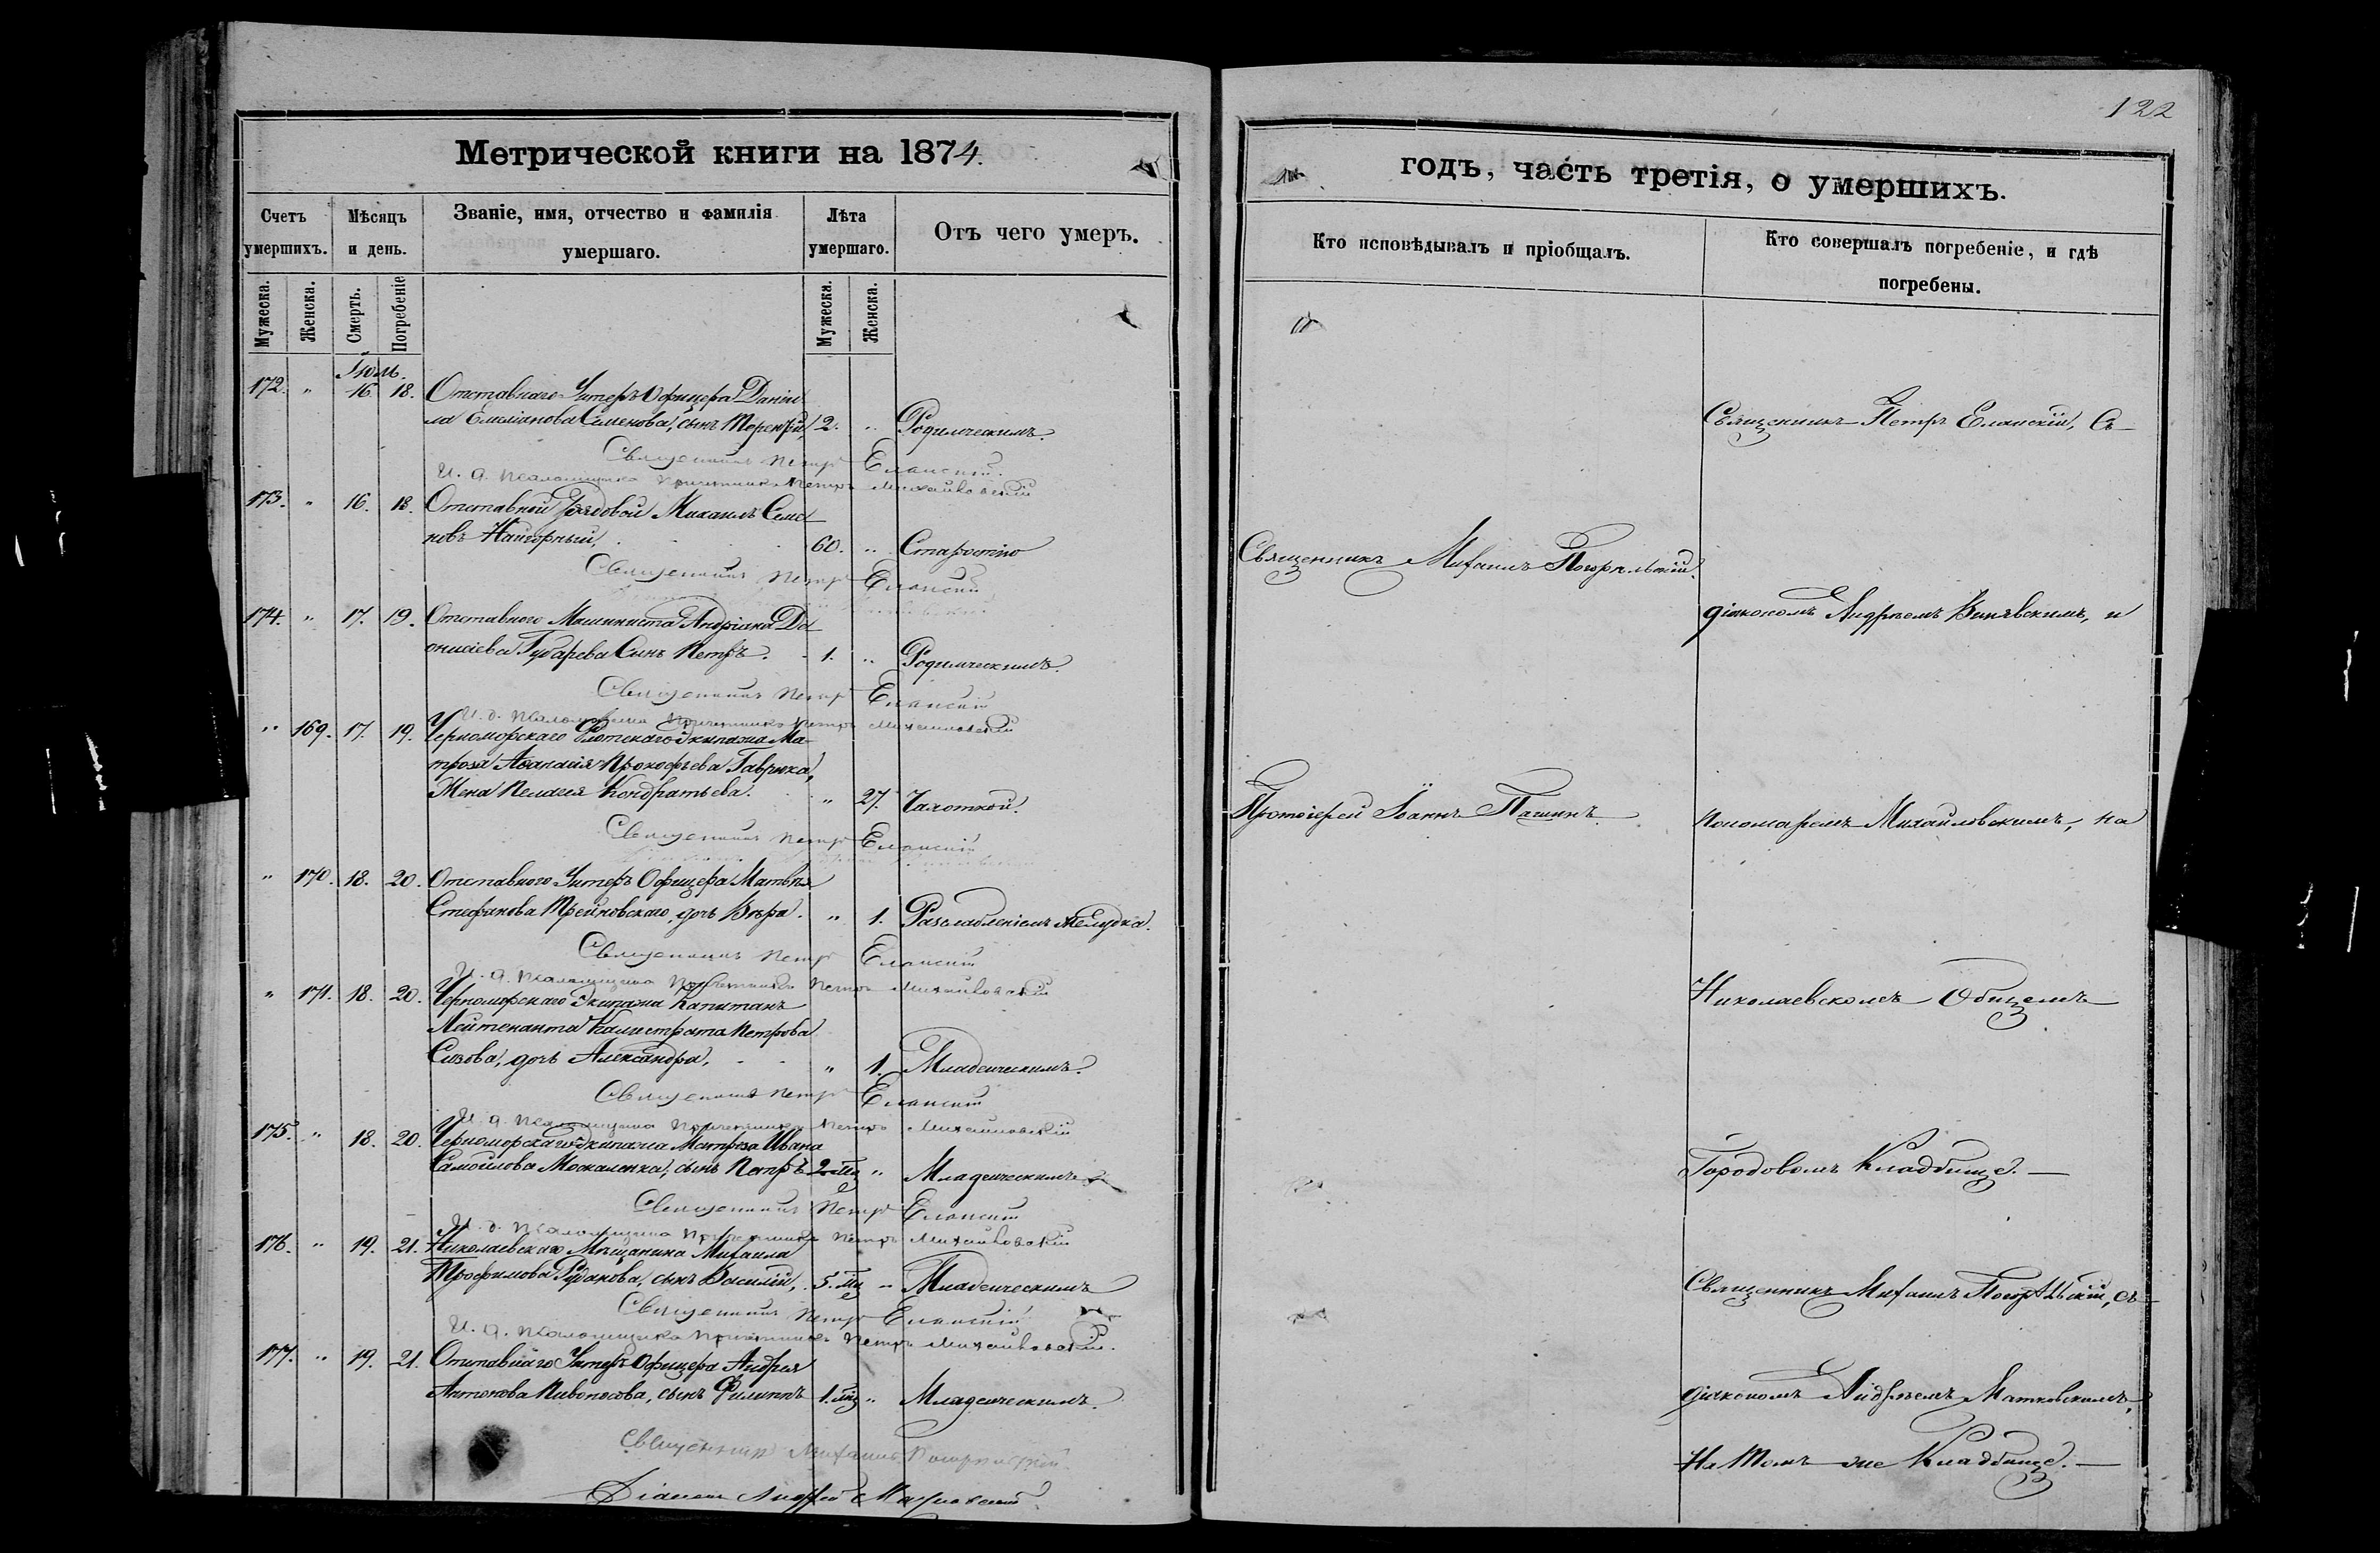 122
Метрической книги на 1874.
годъ, часть третія, о умершихъ.
Счетъ умершихъ.
Мѣсяцъ и день.
Званіе, имя, отчество и фамилія умершаго.
Лѣта умершаго.
Отъ чего умеръ.
Кто исповѣдывалъ и пріобщалъ.
Кто совершалъ погребеніе, и гдѣ погребены.
Мужеска.
Женска.
Смерть.
Погребеніе
Мужеска.
Женска.
Іюль.
172. " 16. 18. Отставнаго Унтеръ Офицера Даніи
ла Емеліанова Семенова, сынъ 2. " Родимческимъ.
Священникъ Петръ Еланскій.
И. д. Псаломщика Причетникъ Петръ Михайловскій
173. " 16. 18. Отставной Рядовой Михаилъ Семе
новъ Нагорный, 60. " Старостію
Священникъ Петръ Еланскій
174. " 17. 19. Отставного Машиниста Андріана Дi
онисіева Губарева Сынъ Петръ. 1. " Родимческимъ.
Священникъ Петръ Еланскій
И. д. Псаломщика Причетникъ Петръ Михайловскій
" 169. 17. 19. Черноморскаго Флотскаго Экипажа Ма-
троза Аѳанасія Прокофьева Гаврика,
Жена Пелагея Кондратьева. " 27. Чахоткой.
Священникъ Петръ Еланскій
" 170. 18. 20. Отставного Унтеръ Офицера Матвѣя
Стефанова дочь Вѣра. " 1. Разслабленіемъ желудка.
Священникъ Петръ Еланскій
И. д. Псаломщика Причетникъ Петръ Михайловскій
" 171. 18. 20. Черноморскаго Экипажа Капитанъ
Лейтенанта Калистрата Петрова
Сизова, дочь Александра, " 1. Младенческимъ.
Священникъ Петръ Еланскій
И. д. Псаломщика Причетникъ Петръ Михайловскій
175. " 18. 20. Черноморскаго Экипажа Матроза Ивана
Самойлова Москаленка, сынъ Петръ 2 мц " Младенческимъ
Священникъ Петръ Еланскій
И. д. Псаломщика Причетникъ Петръ Михайловскій
176. " 19. 21. Николаевскаго Мѣщанина Михаила
Трофимова Рудакова, сынъ Василій, 5. мц " Младенческимъ
Священникъ Петръ Еланскій
И. д. Псаломщика Причетникъ Петръ Михайловскій.
177. " 19. 21. Отставнаго Унтеръ Офицера Андрея
Антонова Пивоносова, сынъ Филиппъ 1. мц " Младенческимъ.
Священникъ Михаилъ Погорѣльскій
Діаконъ Андрей Матковскій
Священникъ Михаилъ Погорѣльскій.
Протоіерей Іоаннъ Пашинъ.
Священникъ Петръ Еланскій, Съ
діакономъ Андреемъ Винявскимъ, и
пономаремъ Михайловскимъ, на
Николаевскомъ Общемъ
Городовомъ Кладбище.
Священникъ Михаилъ Погорѣльскій, съ
діакономъ Андреемъ Матковскимъ,
на томъ же Кладбище.